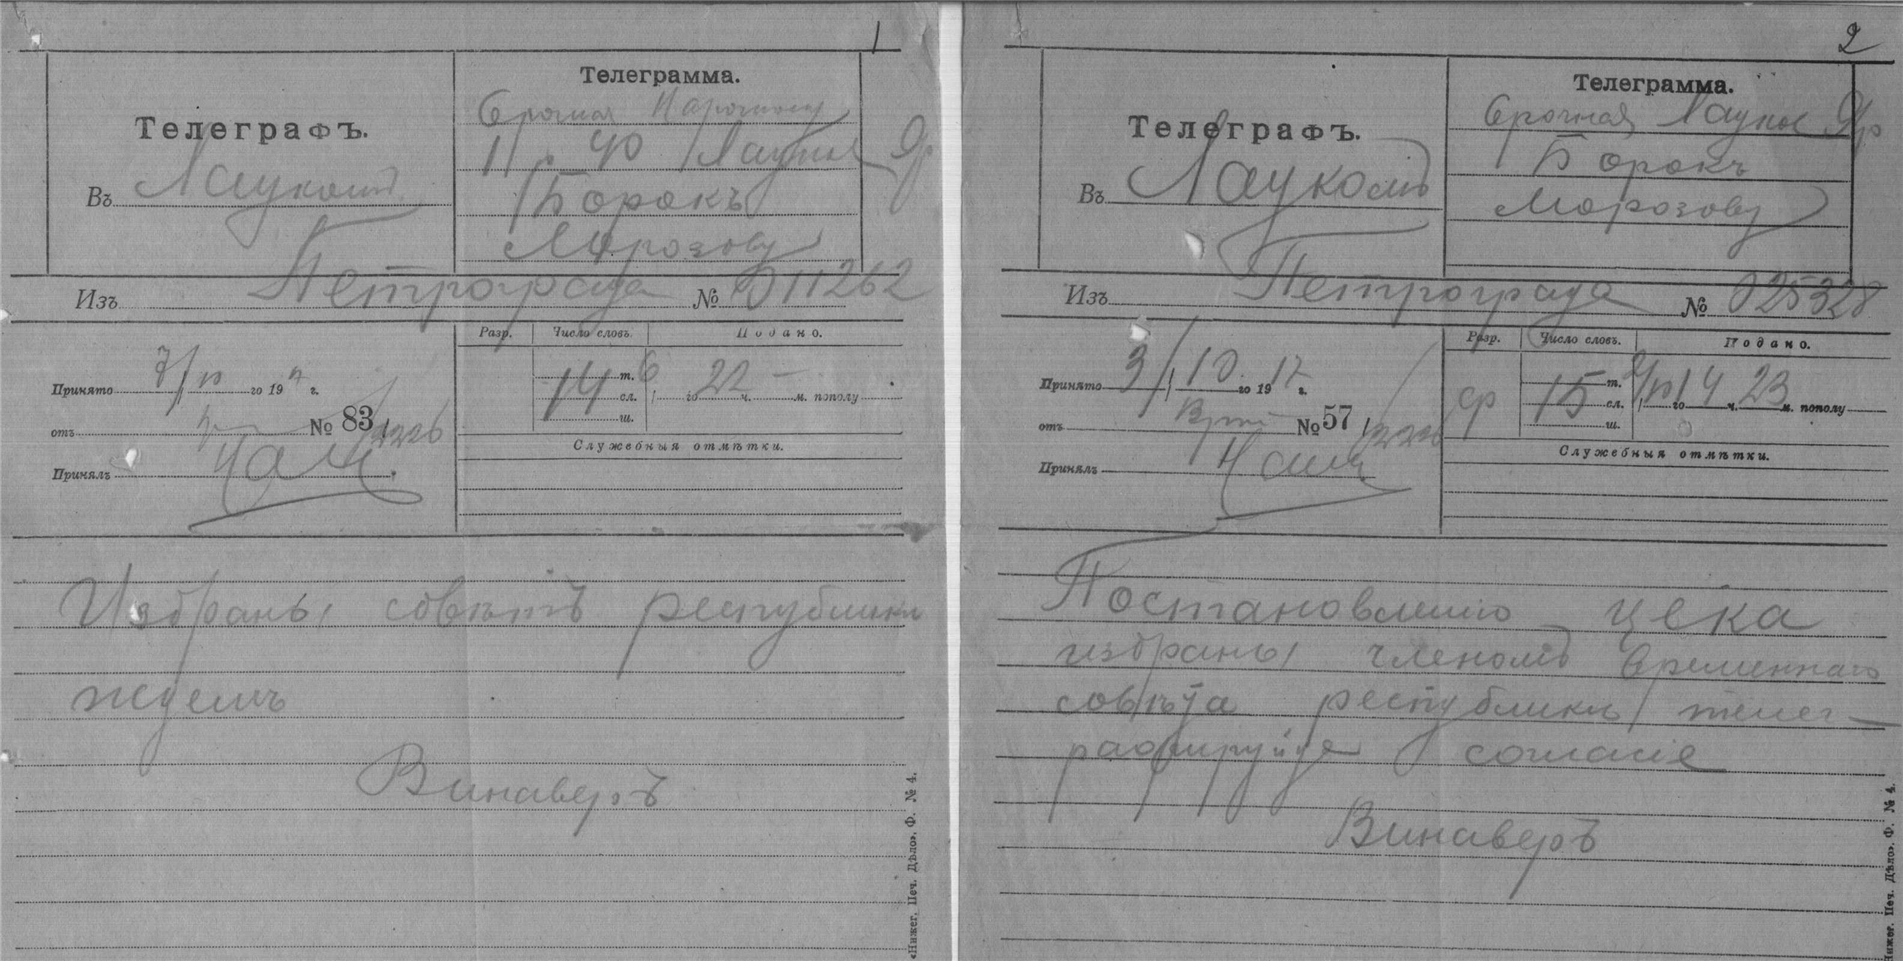 1
Телеграфъ.
Въ Лаукомъ
Телеграмма.
Срочная Нарочному
Борокъ
Морозову
Изъ Петрограда № 011262
Принято 7/10 го 191 г.
отъ № 83
Принялъ
Разр. Число словъ. Подано.
14 т. 6 22 -
сл. го ч. м. пополу
ш.
Служебныя отмѣтки.
Избраны совѣтъ республики
ждемъ
Винаверъ
«Нижег. Печ. Дѣло». Ф. № 4.
2
Телеграфъ.
Въ Лаукомъ
Телеграмма.
Срочная Яр
Борокъ
Морозову
Изъ Петрограда № 025328
Принято 3/10 го 1917 г.
отъ № 57
Принялъ
Разр. Число словъ. Подано.
ср 15 т. 23
сл. го ч. м. пополу
ш.
Служебныя отмѣтки.
Постановленію цека
избраны членомъ временнаго
совѣта республики телег-
рафируйте согласіе
Винаверъ
«Нижег. Печ. Дѣло». Ф. № 4.